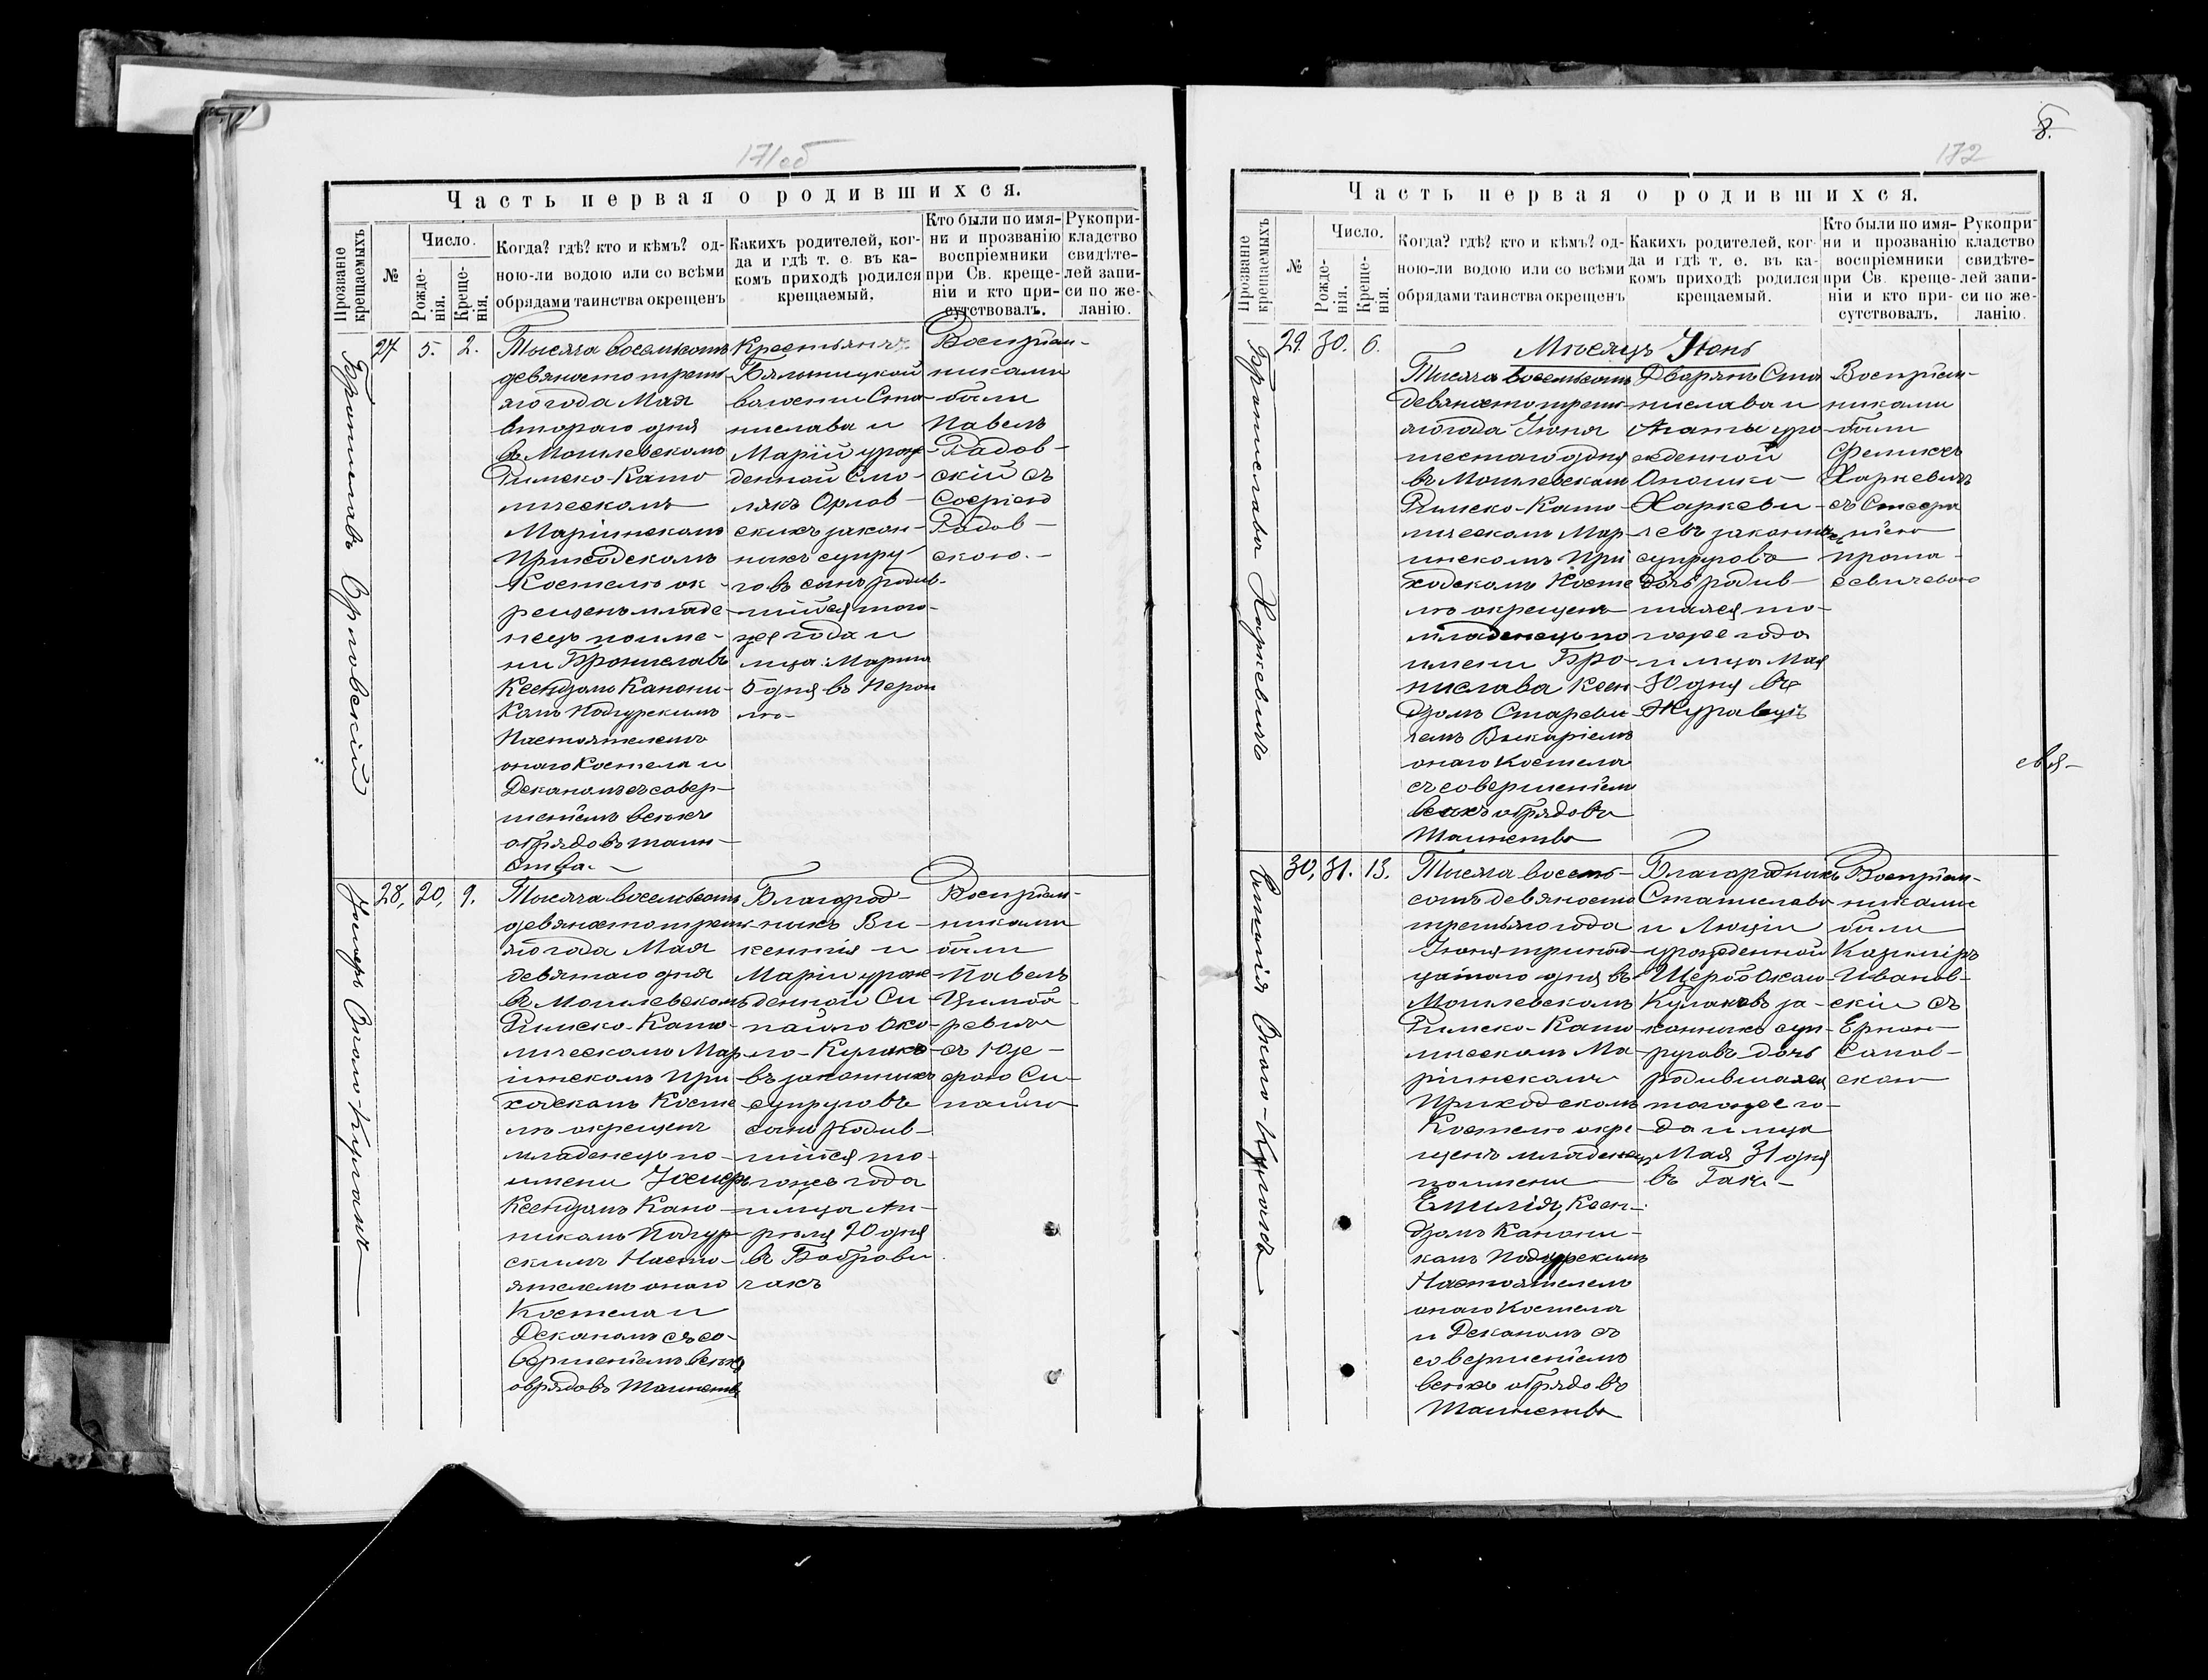 171об
Часть первая о родившихся.
Прозваніе крещаемыхъ
№
Число.
Рожденія.
Крещенія.
Когда? гдѣ? кто и кѣмъ? од-
ною-ли водою или со всѣми
обрядами таинства окрещенъ
Какихъ родителей, ког-
да и гдѣ т. е. въ ка-
комъ приходѣ родился
крещаемый.
Кто были по имя-
ни и прозванію
воспріемники
при Св. креще-
ніи и кто при-
сутствовалъ.
Рукопри-
кладство
свидѣте-
лей запи-
си по же-
ланію.
Брониславъ Орловскій
27 5. 2.
Тысяча восемьсотъ
девяносто треть-
яго года Мая
второго дня
въ Могилевскомъ
Римско-Като
лическомъ
Маріинскомъ
Приходскомъ
Костелѣ ок-
рещенъ младе-
нецъ по име-
ни Брониславъ
Ксендзомъ Канони-
комъ Подгурскимъ
Настоятелемъ
онаго Костела и
Деканомъ съ совер-
шеніемъ всѣхъ
обрядовъ таин-
ства.
Крестьянъ
волости Ста-
нислава и
Маріи урож-
денной Смо-
лякъ Орлов-
скихъ закон-
ныхъ супру-
говъ сынъ родив-
шійся того-
же года и
мца: Марта
5 дня въ
Воспріем-
никами
были
Павелъ
Радов-
скій съ
Софіею
Радов-
скою.
Іосифъ Около-Кулакъ
28, 20, 9.
Тысяча восемьсотъ
девяносто треть-
яго года Мая
девятаго дня
въ Могилевскомъ
Римско-Като-
лическомъ Мар
іинскомъ При-
ходскомъ Косте
лѣ окрещенъ
младенецъ по-
имени Іосифъ
Ксендзомъ Кано-
никомъ Подгур-
скимъ Насто-
ятелемъ онаго
Костела и
Деканомъ съ со-
вершеніемъ всѣхъ
обрядовъ Таинства
Благород-
ныхъ Ви-
кентія и
Маріи урож-
денной Си-
пайло Око-
ло-Кулако-
въ законныхъ
супруговъ
сынъ родив-
шійся то-
гоже года
и мца Ап-
рѣля 20 дня
въ Боброви
чахъ
Воспріем-
никами
были
Павелъ
съ Юзе-
фою Си-
пайло
8.
172
Часть первая о родившихся.
Прозваніе крещаемыхъ
№
Число.
Рожденія.
Крещенія.
Когда? гдѣ? кто и кѣмъ? од-
ною-ли водою или со всѣми
обрядами таинства окрещенъ
Какихъ родителей, ког-
да и гдѣ т. е. въ ка-
комъ приходѣ родился
крещаемый.
Кто были по имя-
ни и прозванію
воспріемники
при Св. креще-
ніи и кто при-
сутствовалъ.
Рукопри-
кладство
свидѣте-
лей запи-
си по же-
ланію.
Бронислава Харкевичъ
29. 30. 6.
Мѣсяцъ Іюнь
Тысяча восемьсотъ
девяносто треть-
яго года Іюня
шестаго дня
въ Могилевскомъ
Римско-Като-
лическомъ Мар-
инскомъ При
ходскомъ Косте
лѣ окрещенъ
младенецъ по
имени Бро-
нислава Ксен
дзомъ Стареви-
чемъ Викаріемъ
онаго Костела
съ совершеніемъ
всѣхъ обрядовъ
Таинства
Дворянъ Ста
нислава и
Агаты уро-
жденной
Опошко-
Харкеви-
чевъ законныхъ
супруговъ
дочь родив-
шаяся то-
гоже года
и мца Мая
30 дня въ
Журавцѣ
Воспріем-
никами
были
Феликсъ
Харкевичъ
съ Стефа
ніею
Прота-
севичевою
евя-
Емилія Около-Кулакъ
30, 31. 13.
Тысяча восемь-
сотъ девяносто
третьяго года
Іюня тринад-
цатаго дня въ
Могилевскомъ
Римско-Като
лическомъ Ма-
ріинскомъ
Приходскомъ
Костелѣ окре-
щенъ младенецъ
по имени
Емилія, Ксен-
дзомъ Канони-
комъ Подгурскимъ
Настоятелемъ
онаго Костела
и Деканомъ съ
совершеніемъ
всѣхъ обрядовъ
Таинства
Благородныхъ
Станислава
и Люціи
урожденной
Щербо Около-
Кулаковъ за-
конныхъ суп-
руговъ дочь
родившаяся
тогоже го-
да и мца
Мая 31 дня
въ
Воспріем-
никами
были
Казиміръ
Иванов-
скій съ
Санов-
скою